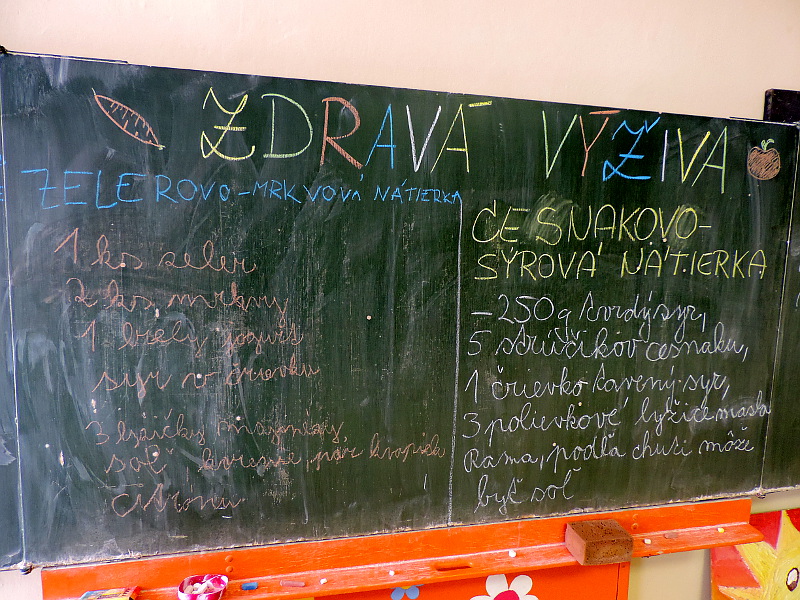 ZDRAVÁ VÝŽIVA
ZELEROVO-MRKVOVÁ NÁTIERKA
1 ks zeler
2 ks mrkvy
1 biely jogurt
syr v črievku
3 lyžičky majonézy,
soľ korenie, pár kvapiek
citrónu
ČESNAKOVO-
SYROVÁ NÁTIERKA
-250g tvrdý syr,
5 strúčikov cesnaku,
1 črievko tavený syr,
3 polievkové lyžice masla
Rama, podľa chuti môže
byť soľ